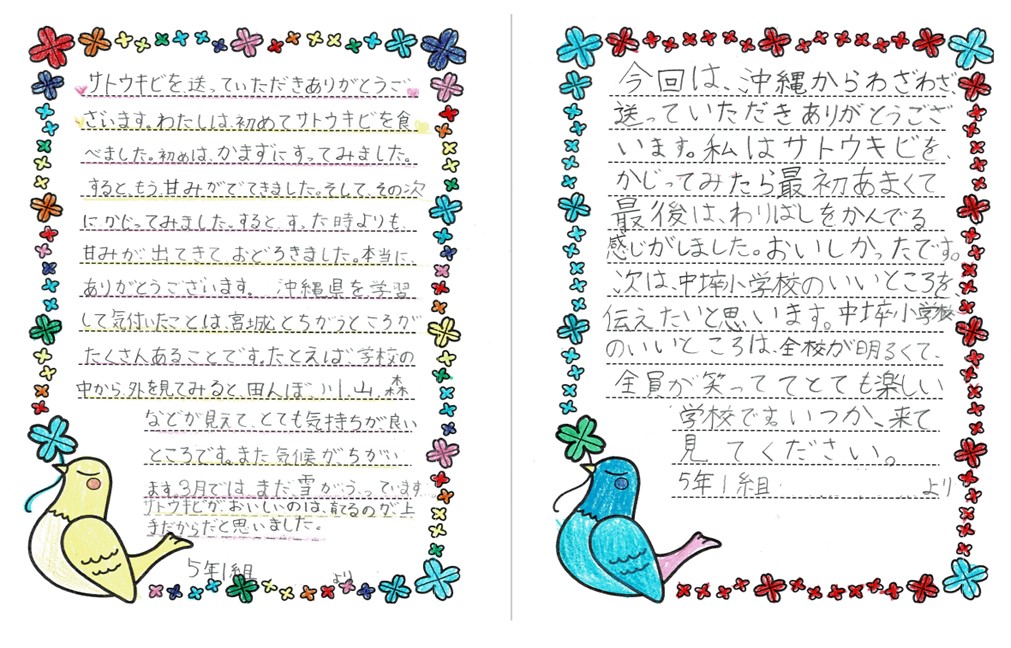 サトウキビを送っていただきありがとうご
ざいます。わたしは、初めてサトウキビを食
べました。初めは、かまずにすってみました。
すると、もう甘みがでてきました。そして、その次
に、かじってみました。すると、すった時よりも、
甘みが、出てきて、おどろきました。本当に、
ありがとうございます。 沖縄県を学習
して気付いたことは、宮城とちがうところが
たくさんあることです。たとえば、学校の
中から、外を見てみると、田んぼ、川、山、森
などが見えて、とても気持ちが良い
ところです。また、気候が、ちがい
ます。3月では、まだ、雪がふっています。
サトウキビが、おいしいのは、育てるのが上
手だからだと思いました。
5年1組 より
今回は、沖縄からわざわざ、
送っていただきありがとうござ
います。私はサトウキビを、
かじってみたら最初あまくて
最後は、わりばしをかんでる
感じがしました。おいしかったです。
次は、中埣小学校のいいところを、
伝えたいと思います。中埣小学校
のいいところは、全校が明るくて、
全員が笑っててとても楽しい
学校です。いつか、来て
見てください。
5年1組 より